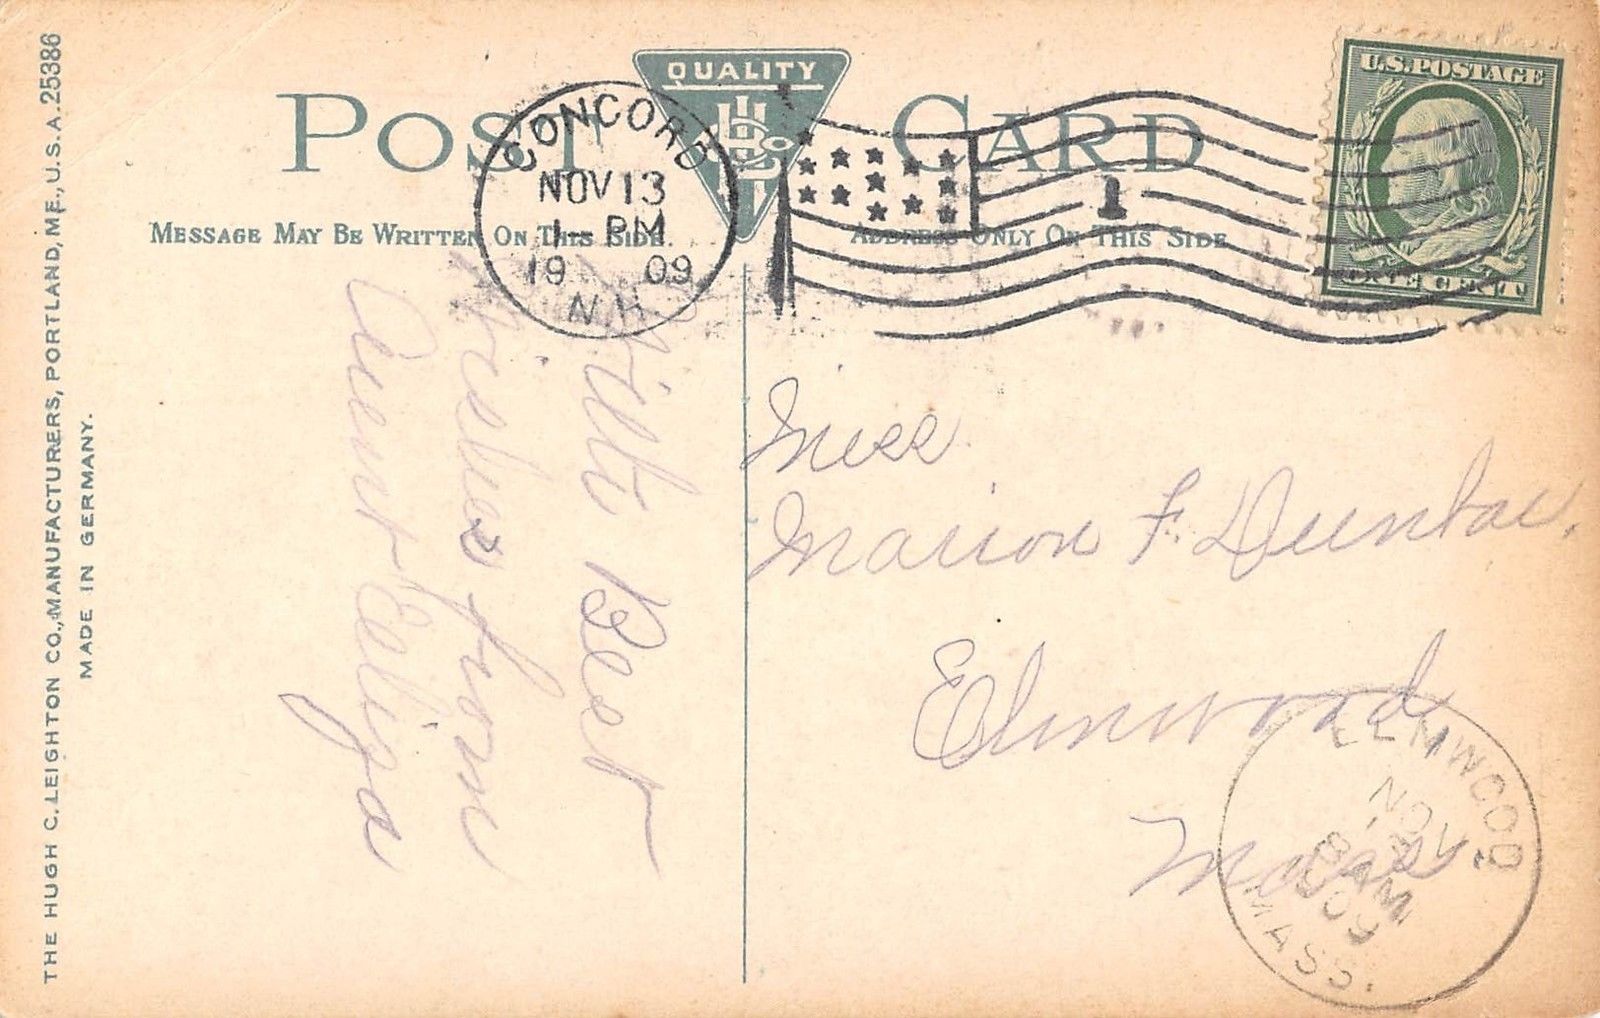 THE HUGH C. LEIGHTON CO., MANUFACTURERS, PORTLAND, ME., U.S.A. 25386
MADE IN GERMANY.
POST CARD
QUALITY
MESSAGE MAY BE WRITTEN ON THIS SIDE.
ADDRESS ONLY ON THIS SIDE
CONCORD
NOV 13
1-PM
19 09
N.H.
1
U.S. POSTAGE
ONE CENT
With Best
Wishes from
Aunt Eliza
Miss
Marion F. Dunbar.
Elmwood
Mass
ELMWOOD
NOV
8 AM
1909
MASS.